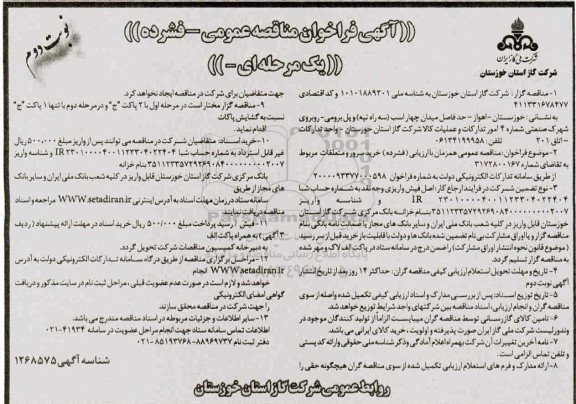 ((آگهی فراخوان مناقصه عمومی – فشرده))
((یک مرحله ای –))
نوبت دوم
شرکت ملی گاز ایران
شرکت گاز استان خوزستان
۱-مناقصه گزار: شرکت گاز استان خوزستان به شناسه ملی ۱۰۱۰۱۸۸۹۲۰۱ و کد اقتصادی
۴۱۱۳۳۱۶۷۸۴۷۷
به نشانی: خوزستان – اهواز – حد فاصل میدان چهار اسب (سه راه تپه) و پل برومی- روبروی
شهرک صنعتی شماره ۴ امور تدارکات و عملیات کالا شرکت گاز استان خوزستان – واحد تدارکات
– اتاق ۲۰۱ تلفن: ۰۶۱۳۴۱۹۹۹۵۸
۲-موضوع فراخوان: مناقصه عمومی همزمان با ارزیابی (فشرده) خرید و متعلقات مربوط
به تقاضای شماره ۳۱۷۲۸۰۰۱۶۷
از طریق سامانه تدارکات الکترونیکی دولت به شماره فراخوان ۲۰۰۰۰۹۳۳۷۷۰۰۰۵۹۸
۳-نوع تضمین شرکت در فرایند ارجاع کار: اصل فیش واریزی وجه نقد به شماره حساب شبا
IR و شناسه واریز
بنام خزانه بانک مرکزی شرکت گاز استان
خوزستان قابل واریز در کلیه شعب بانک ملی ایران و سایر بانک های مجاز یا ضمانت نامه بانکی بنام
مناقصه گزار و یا اوراق مشارکت بی نام تضمین شده بانک ها و دولت با قابلیت باز خرید قبل از سررسید
(موضوع قانون نحوه انتشار اوراق مشارکت) را ضمن درج در سامانه ستاد در پاکت الف لاک و مهر شده
به مناقصه گزار تسلیم گردد.
۴-تاریخ و مهلت تحویل استعلام ارزیابی کیفی مناقصه گران: حداکثر ۱۴ روز بعد از تاریخ انتشار
آگهی نوبت دوم
۵-تاریخ توزیع اسناد: پس از بررسی مدارک و اسناد ارزیابی کیفی تکمیل شده واصله از سوی
مناقصه گران و انجام ارزیابی، اسناد مناقصه بین شرکتهای واجد شرایط توزیع خواهد شد.
۶-تامین کالای گازرسانی توسط مناقصه گران میبایست الزاما از تولید کنندگان موجود در
وندور لیست شرکت ملی گاز ایران صورت پذیرفته و اولویت، خرید کالای ایرانی می باشد.
۷-نامه آخرین تغییرات آن شرکت بهمراه اعلام آمادگی و ذکر شناسه ملی حقوقی و ارائه کد پستی
و تلفن تماس الزامی است.
۸-ارائه مدارک و فرم های استعلام ارزیابی تکمیل شده از سوی مناقصه گران هیچگونه حقی را
جهت متقاضیان برای شرکت در مناقصه ایجاد نخواهد کرد.
۹-مناقصه گزار مختار است در مرحله اول با ۲ پاکت "ج" و در مرحله دوم با تنها ۱ پاکت "ج"
نسبت به گشایش پاکات
اقدام نماید.
۱۰-خرید اسناد: متقاضیان شرکت در مناقصه می توانند پس از واریز مبلغ ۵۰۰,۰۰۰ ریال
غیر قابل استرداد به شماره حساب شبا IR و شناسه واریز
بنام خزانه
بانک مرکزی شرکت گاز استان خوزستان قابل واریز در کلیه شعب بانک ملی ایران و سایر بانک
های مجاز از طریق
سامانه ستاد در زمان مهلت اسناد به آدرس اینترنتی WWW.setadiran.ir مراجعه و اسناد
مناقصه دریافت نمایند.
فیش / رسید پرداخت مبلغ ۵۰۰/۰۰۰ ریال خرید اسناد در مهلت ارائه پیشنهاد (ردیف
۳ آگهی) به همراه پاکت الف
به دبیرخانه کمیسیون مناقصات شرکت تحویل گردد.
۱۲-مراحل برگزاری مناقصه از طریق درگاه سامانه تدارکات الکترونیکی دولت به آدرس
WWW.setadiran.ir انجام
خواهد شد و لازم است در صورت عدم عضویت قبلی، مراحل ثبت نام در سایت مذکور و دریافت
گواهی امضای الکترونیکی
را جهت شرکت در مناقصه محقق سازند.
۱۳-سایر اطلاعات و جزئیات مربوطه در اسناد مناقصه مندرج می باشد.
اطلاعات تماس سامانه ستاد جهت انجام مراحل عضویت در سامانه ۴۱۹۳۴-۰۲۱
دفتر ثبت نام ۸۸۹۶۹۷۳۷-۸۵۱۹۳۷۶۸-۰۲۱
شناسه آگهی ۱۲۶۸۵۷۵
روابط عمومی شرکت گاز استان خوزستان